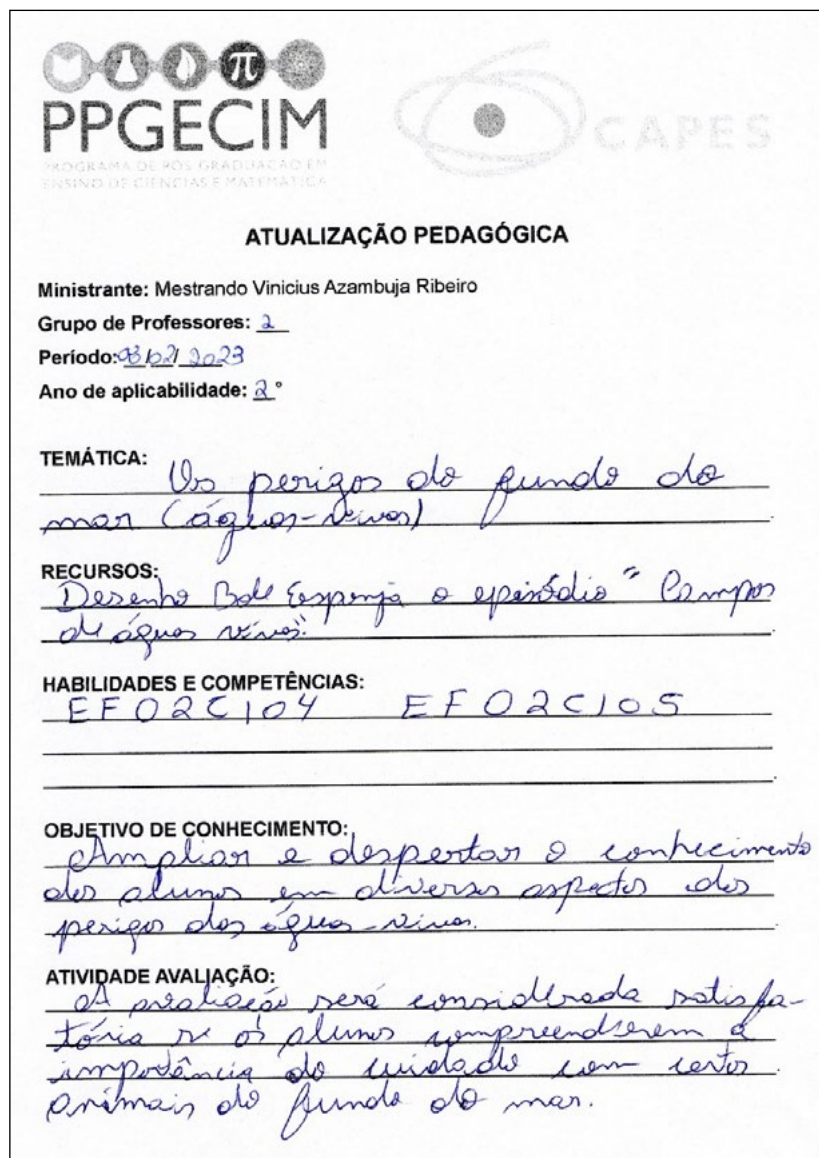 π
PPGECIM
PROGRAMA DE PÓS GRADUAÇÃO EM
ENSINO DE CIÊNCIAS E MATEMÁTICA
CAPES
ATUALIZAÇÃO PEDAGÓGICA
Ministrante: Mestrando Vinicius Azambuja Ribeiro
Grupo de Professores: 2
Período: 03/02/2023
Ano de aplicabilidade: 2°
TEMÁTICA:
Os perigos do fundo do
mar (águas-vivas)
RECURSOS:
Desenho Bob Esponja o episódio "Campos
de águas vivas".
HABILIDADES E COMPETÊNCIAS:
EF02CI04 EF02CI05
OBJETIVO DE CONHECIMENTO:
Ampliar e despertar o conhecimento
dos alunos em diversos aspectos dos
perigos das águas-vivas.
ATIVIDADE AVALIAÇÃO:
A avaliação será considerada satisfa-
tória se os alunos compreenderem a
importância do cuidado com certos
animais do fundo do mar.